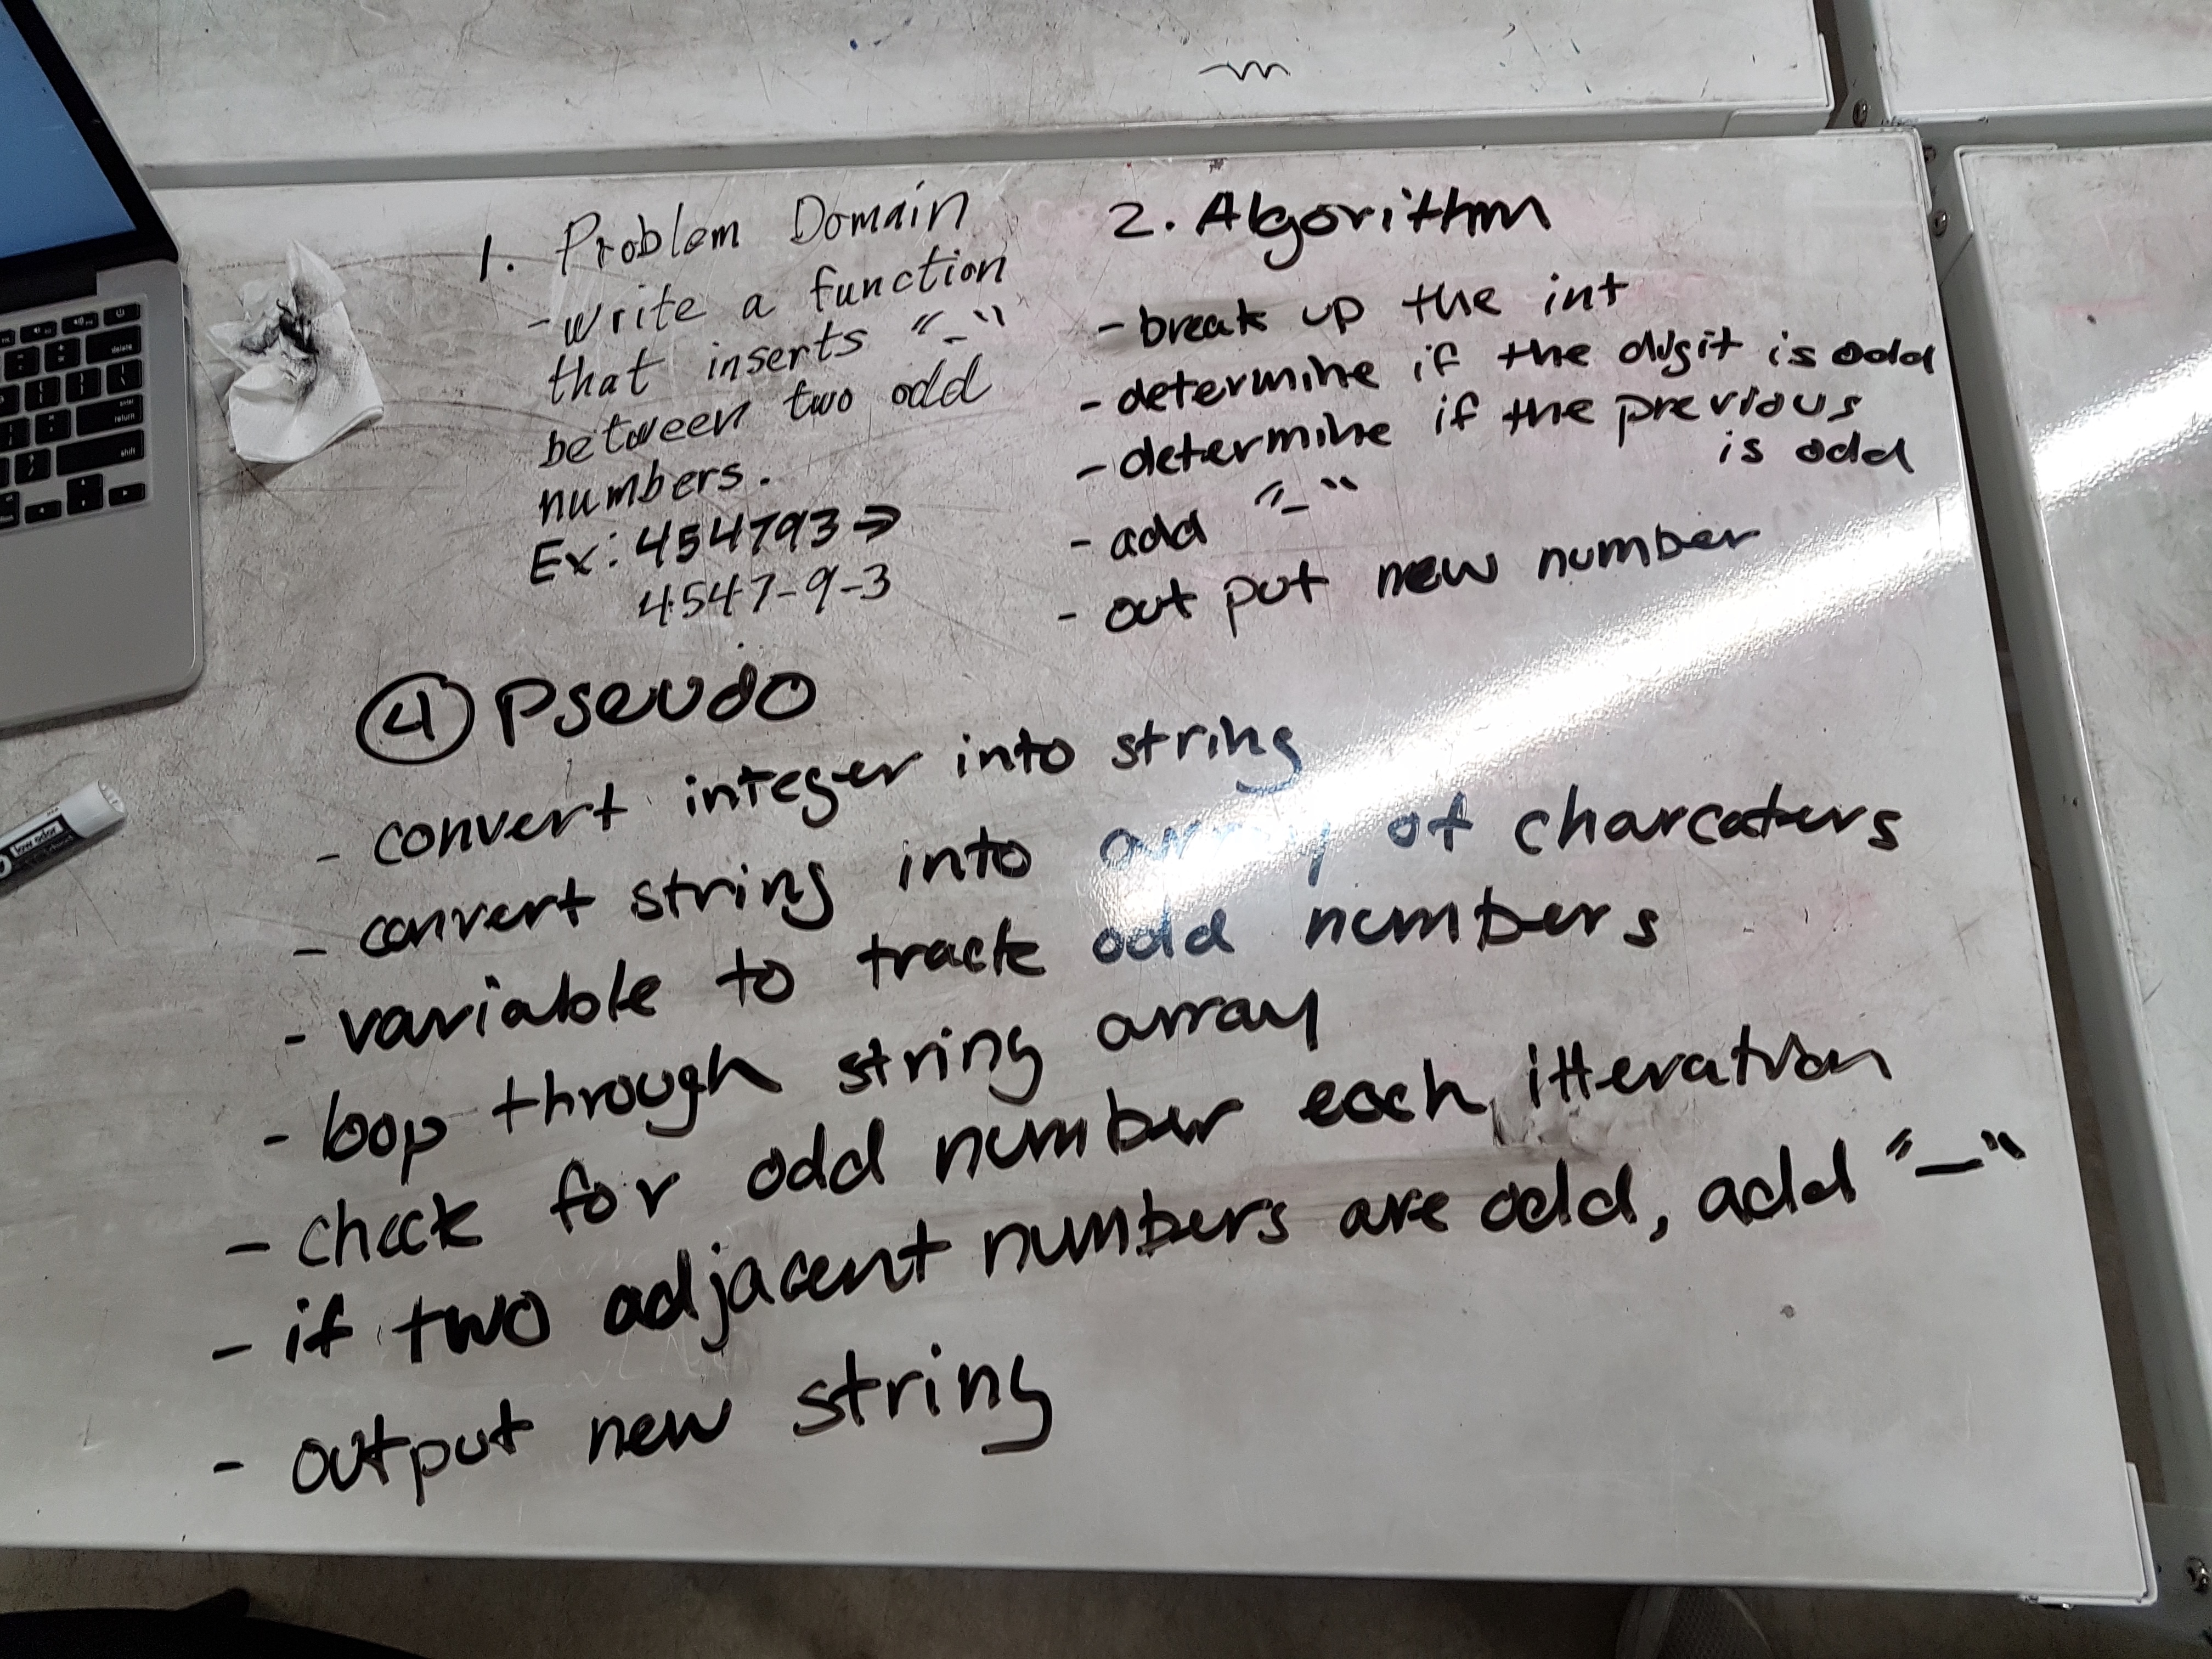 1. Problem Domain
- Write a function
that inserts "-"
between two odd
numbers.
Ex: 454793 →
4547-9-3
2. Algorithm
- break up the int
- determine if the digit is odd
- determine if the previous
is odd
- add "-"
- out put new number
4 Pseudo
- convert integer into string
- convert string into array of charcaters
- variable to track odd numbers
- loop through string array
- check for odd number each itteration
- if two adjacent numbers are odd, add "-"
- output new string
delete
return
shift
low odor